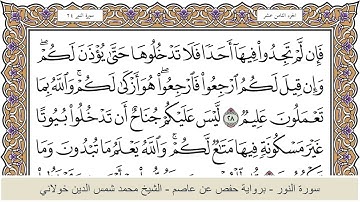 الجزء الثامن عشر
سورة النور ٢٤
فَإِن لَّمْ تَجِدُوا۟ فِيهَآ أَحَدًا فَلَا تَدْخُلُوهَا حَتَّىٰ يُؤْذَنَ لَكُمْ ۖ
وَإِن قِيلَ لَكُمُ ٱرْجِعُوا۟ فَٱرْجِعُوا۟ ۖ هُوَ أَزْكَىٰ لَكُمْ ۚ وَٱللَّهُ بِمَا
تَعْمَلُونَ عَلِيمٌ ٢٨ لَّيْسَ عَلَيْكُمْ جُنَاحٌ أَن تَدْخُلُوا۟ بُيُوتًا
غَيْرَ مَسْكُونَةٍ فِيهَا مَتَٰعٌ لَّكُمْ ۚ وَٱللَّهُ يَعْلَمُ مَا تُبْدُونَ وَمَا
سورة النور - برواية حفص عن عاصم - الشيخ محمد شمس الدين خولاني